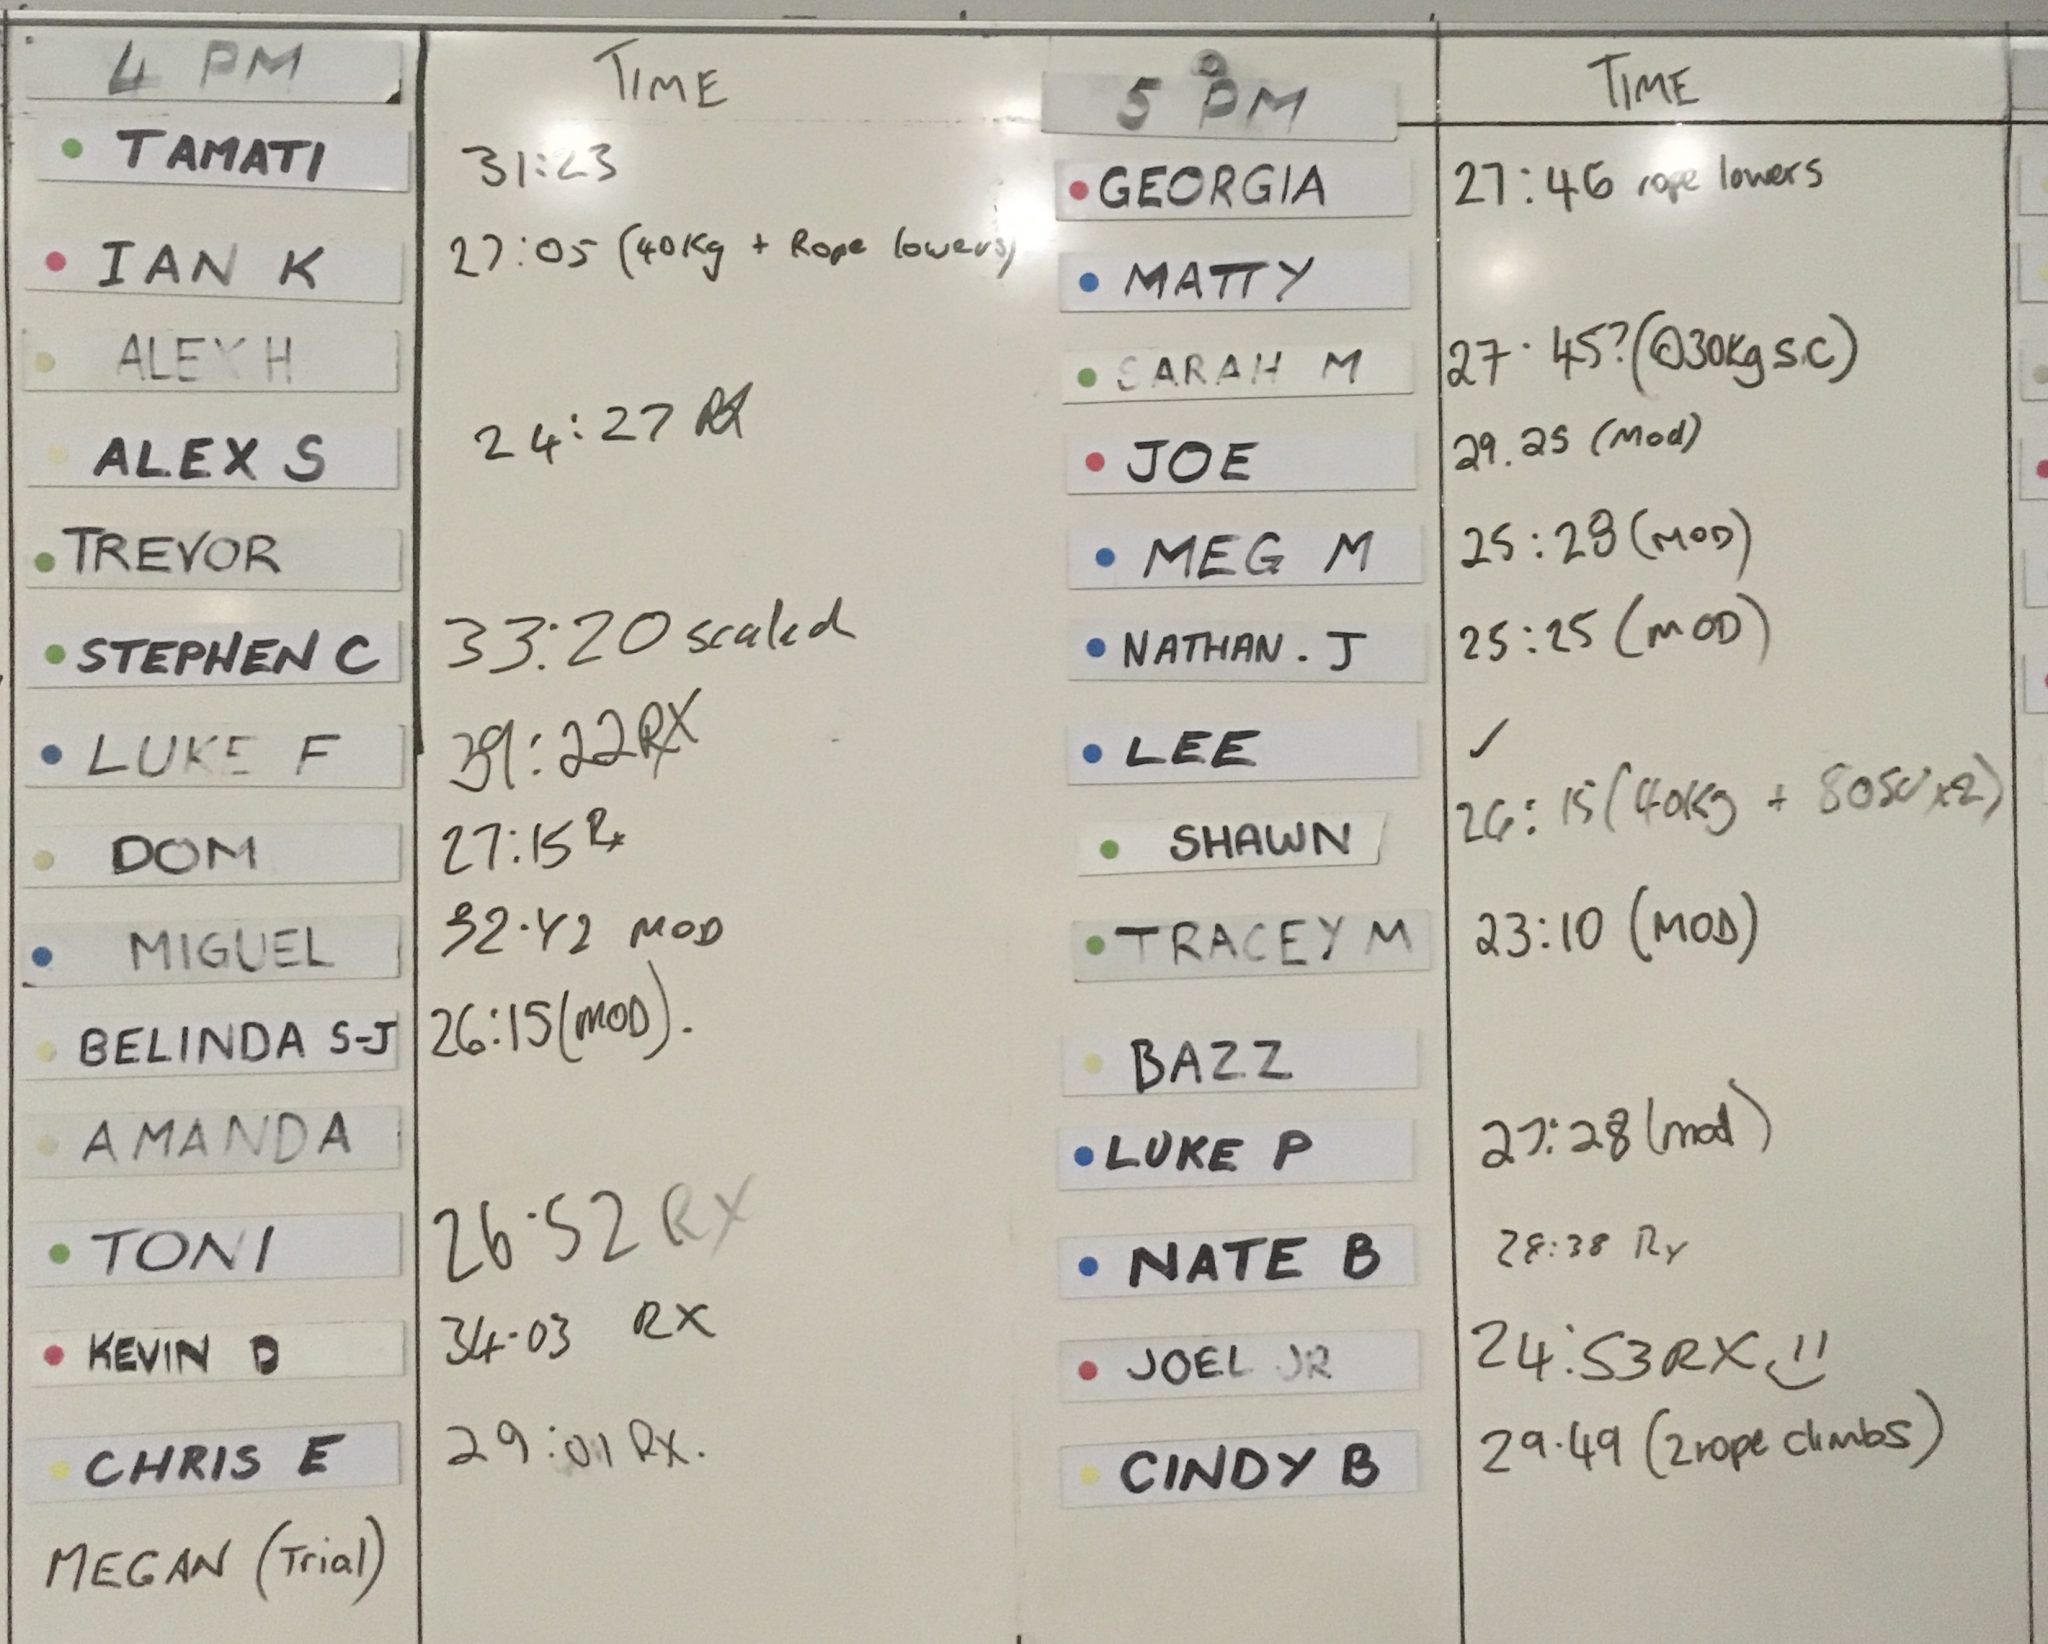 4 PM TIME
TAMATI 31:23
IAN K 27:05 (40Kg + Rope lowers)
ALEX H
ALEX S 24:27 RX
TREVOR
STEPHEN C 33:20 scaled
LUKE F 39:22 RX
DOM 27:15 Rx
MIGUEL 32.42 MOD
BELINDA S-J 26:15 (MOD).
AMANDA
TONI 26:52 RX
KEVIN D 34.03 RX
CHRIS E 29:01 RX.
MEGAN (Trial)
5 PM TIME
GEORGIA 27:46 rope lowers
MATTY
SARAH M 27:45? (@30Kg S.C)
JOE 29.25 (Mod)
MEG M 25:28 (MOD)
NATHAN.J 25:25 (MOD)
LEE ✓
SHAWN 26:15 (40Kg +
TRACEY M 23:10 (MOD)
BAZZ
LUKE P 27:28 (mod)
NATE B 28:38 Rx
JOEL JR 24:53 RX
CINDY B 29.49 (2 rope climbs)